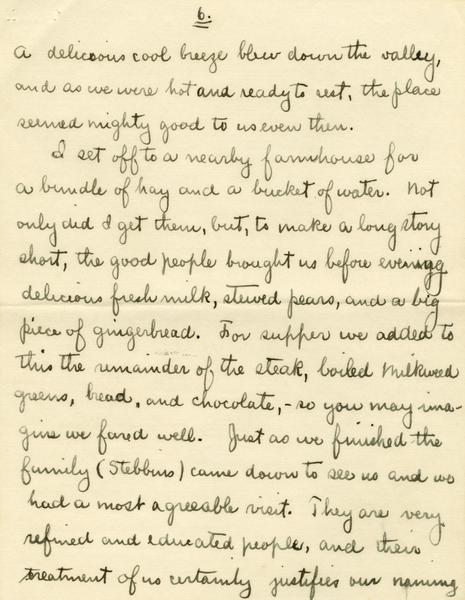 6.
a delicious cool breeze blew down the valley,
and as we were hot and ready to rest, the place
seemed mighty good to us even then.
I set off to a nearby farmhouse for
a bundle of hay and a bucket of water. Not
only did I get them, but, to make a long story
short, the good people brought us before evening
delicious fresh milk, stewed pears, and a big
piece of gingerbread. For supper we added to
this the remainder of the steak, boiled Milkweed
greens, bread, and chocolate, - so you may ima-
gine we fared well. Just as we finished the
family (Stebbins) came down to see us and we
had a most agreeable visit. They are very
refined and educated people, and their
treatment of us certainly justifies our naming